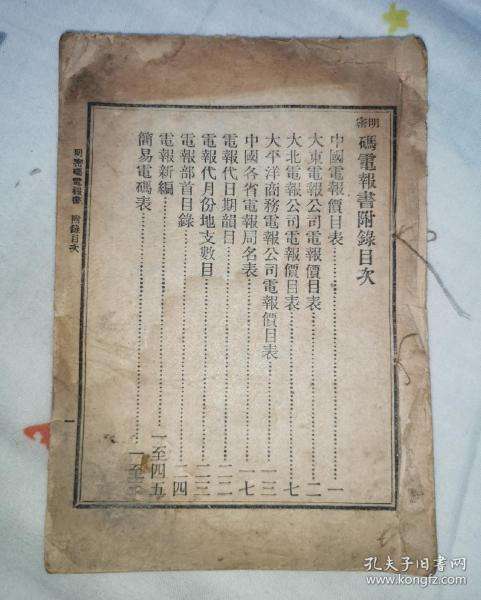 明密碼電報書附錄目次
中國電報價目表……一
大東電報公司電報價目表……二
大北電報公司電報價目表……七
太平洋商務電報公司電報價目表……一三
中國各省電報局名表……一七
電報代日期韻目……二二
電報代月份地支數目……二三
電報部首目錄……二四
電報新編……一至四五
簡易電碼表……一至
明密碼電報書 附錄目次
一
孔夫子旧书网
www.kongfz.com